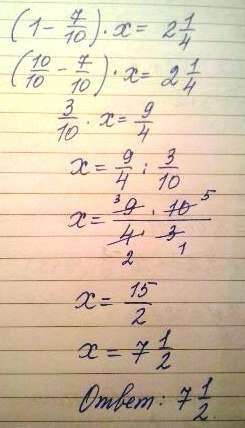 (1 - 7/10) · x = 2 1/4
(10/10 - 7/10) · x = 2 1/4
3/10 · x = 9/4
x = 9/4 : 3/10
x = ³9 · 10⁵ / 4₂ · 3₁
x = 15/2
x = 7 1/2
Ответ: 7 1/2.